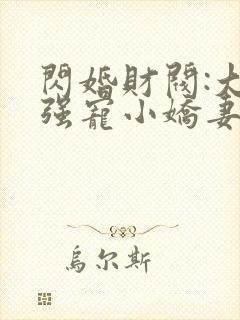 閃婚財閥:大
强寵小嬌妻
烏尔斯